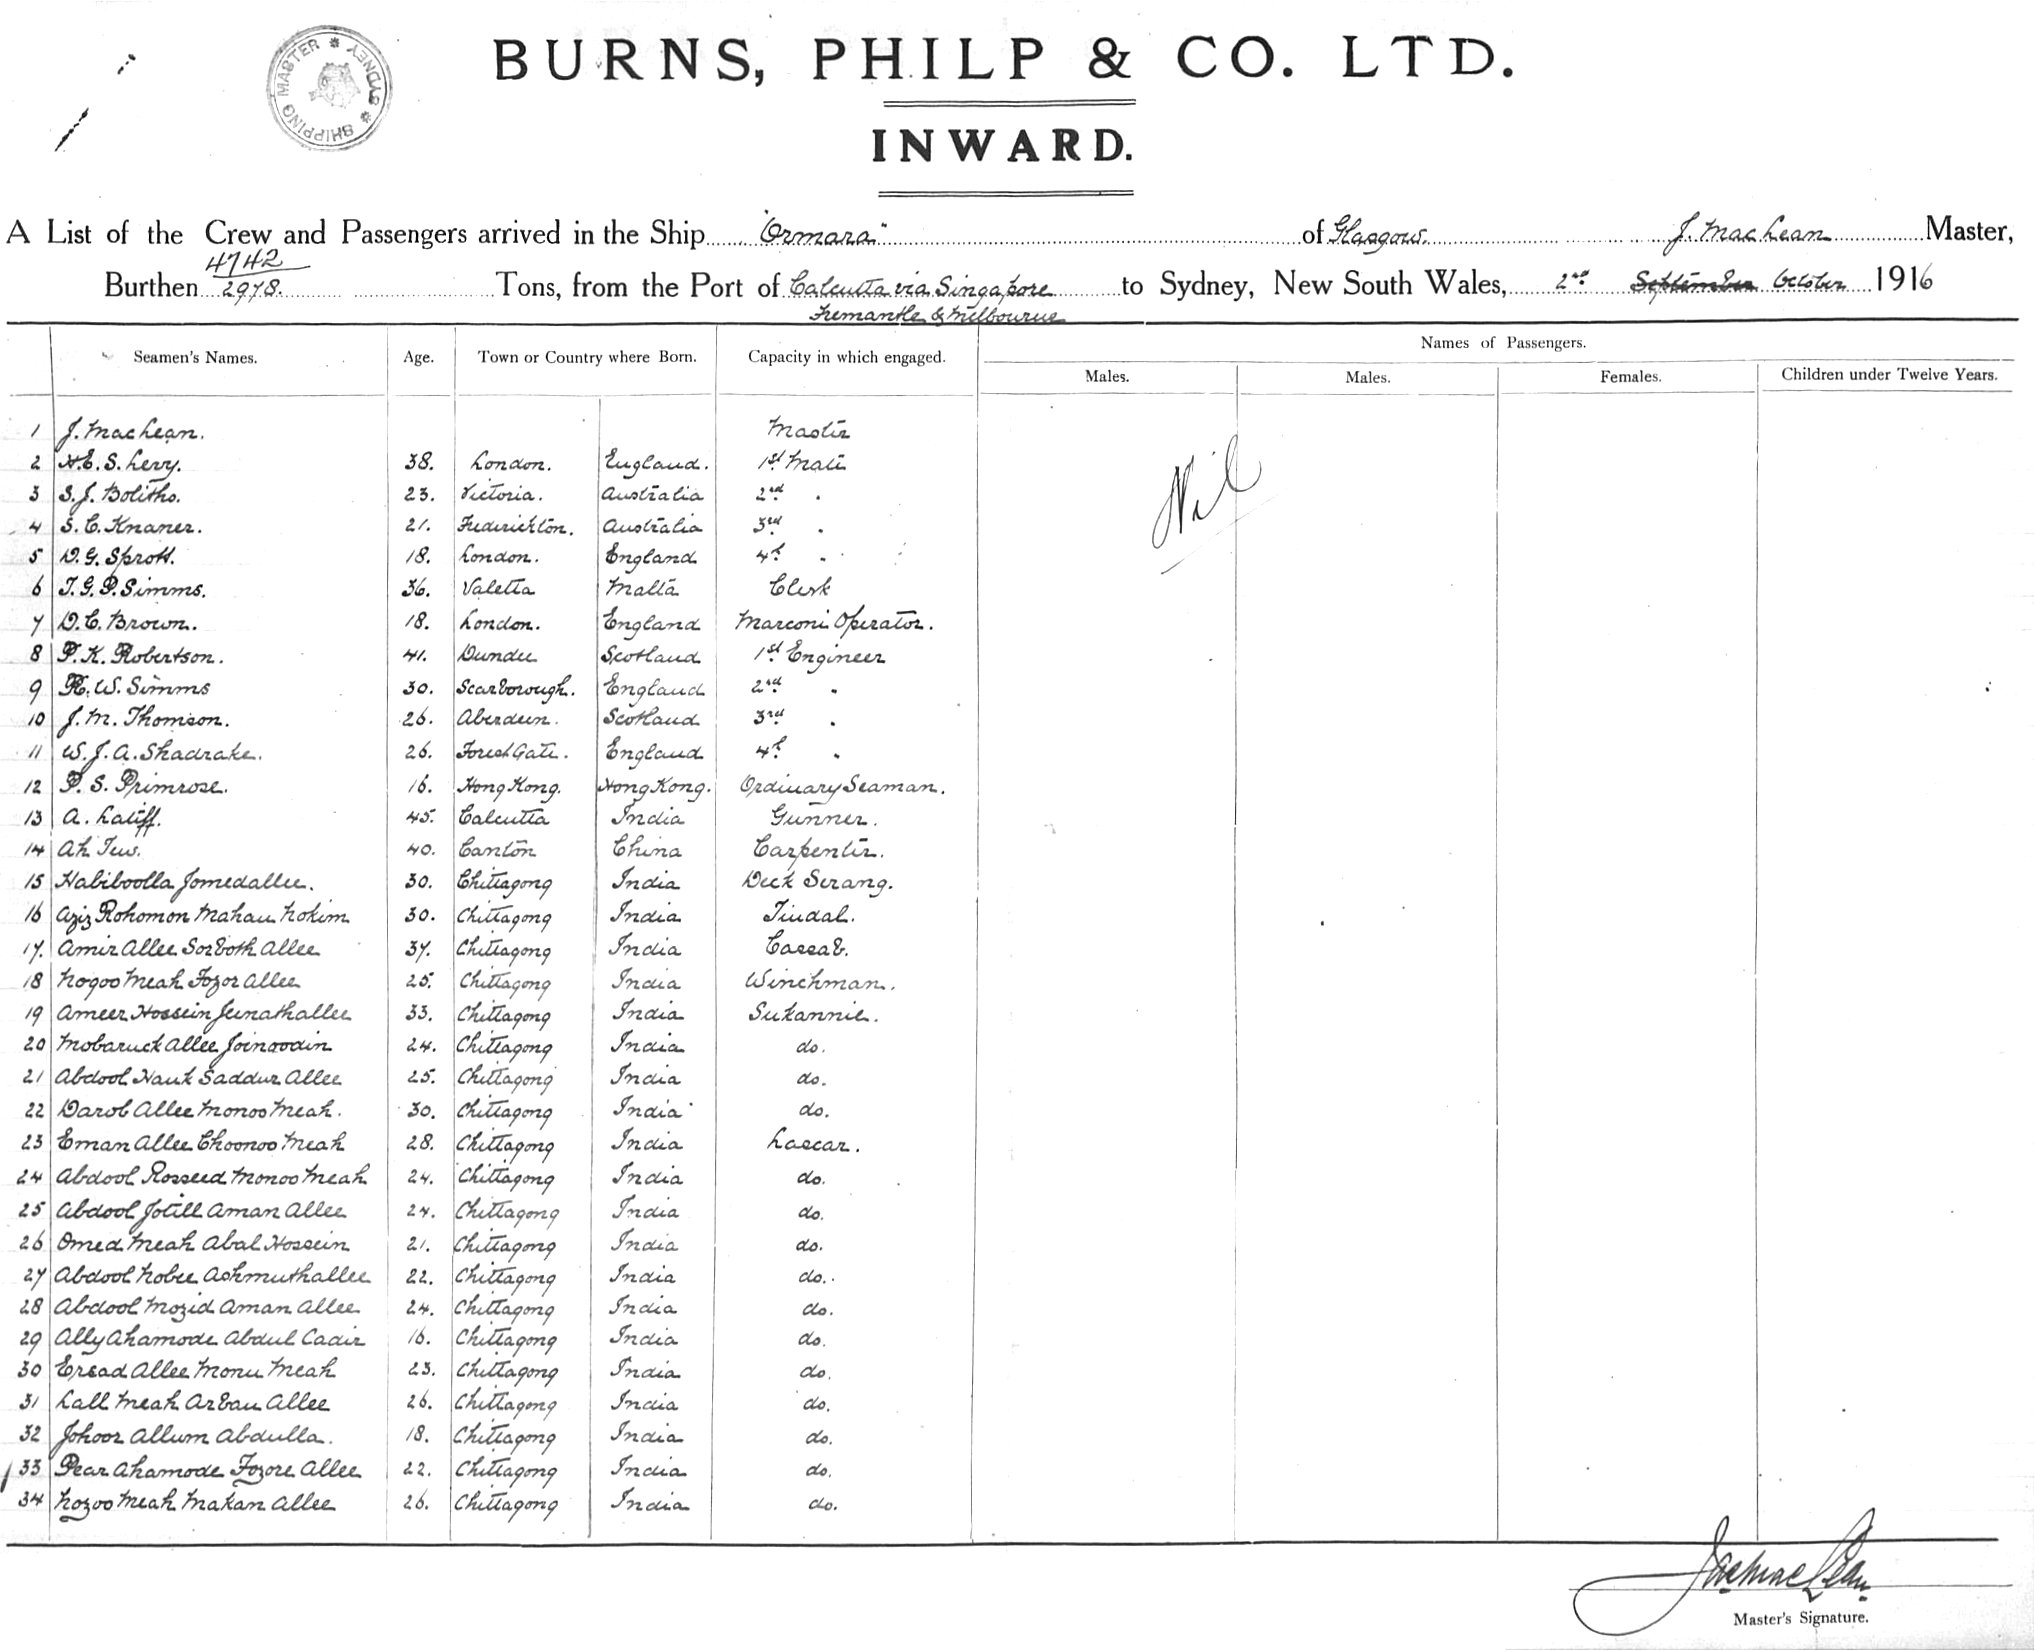 SHIPPING MASTER * SYDNEY *
BURNS, PHILP & CO. LTD.
INWARD.
A List of the Crew and Passengers arrived in the Ship "Ormara" of Glasgow. J. MacLean Master,
4742
Burthen 2978. Tons, from the Port of Calcutta via Singapore to Sydney, New South Wales, 2nd September October 1916
Fremantle & Melbourne
Seamen's Names. Age. Town or Country where Born. Capacity in which engaged. Names of Passengers.
Males. Males. Females. Children under Twelve Years.
1 J. MacLean. Master
2 H.E.S. Levy. 38. London. England. 1st Mate
3 S.J. Bolitho. 23. Victoria. Australia 2nd "
4 S.C. Knaner. 21. Frederickton. Australia 3rd "
5 D.G. Sprott. 18. London. England 4th "
6 T.G.P. Simms. 36. Valetta Malta Clerk
7 D.C. Brown. 18. London. England Marconi Operator.
8 P.K. Robertson. 41. Dundee Scotland 1st Engineer
9 R.W. Simms 30. Scarborough. England 2nd "
10 J.M. Thomson. 26. Aberdeen. Scotland 3rd "
11 W.J.A. Shadrake. 26. Forest Gate. England 4th "
12 P.S. Primrose. 16. Hong Kong. Hong Kong. Ordinary Seaman.
13 A. Latiff. 45. Calcutta India Gunner.
14 Ah Tew. 40. Canton China Carpenter.
15 Habiboolla Jomedallee. 30. Chittagong India Deck Serang.
16 Aziz Rohomon Mahau Hokim 30. Chittagong India Tindal.
17. Amir Allee Sorboth Allee 37. Chittagong India Cassab.
18 Nogoo Meah Fozor Allee 25. Chittagong India Winchman.
19 Ameer Hossein Jeenathallee 33. Chittagong India Sukannie.
20 Mobaruck Allee Joinoodin 24. Chittagong India do.
21 Abdool Hauk Saddur Allee 25. Chittagong India do.
22 Darob Allee Monoo Meah. 30. Chittagong India do.
23 Eman Allee Choonoo Meah 28. Chittagong India Lascar.
24 Abdool Rosseed Monoo Meah 24. Chittagong India do.
25 Abdool Jotill Aman Allee 24. Chittagong India do.
26 Omed Meah Abal Hossein 21. Chittagong India do.
27 Abdool Nobee Ashmuthallee 22. Chittagong India do.
28 Abdool Mozid Aman Allee 24. Chittagong India do.
29 Ally Ahamode Abdul Cadir 16. Chittagong India do.
30 Ersad Allee Monu Meah 23. Chittagong India do.
31 Lall Meah Arban Allee 26. Chittagong India do.
32 Johoor Allum Abdulla. 18. Chittagong India do.
33 Pear Ahamode Fozore Allee 22. Chittagong India do.
34 Nozoo Meah Makan Allee 26. Chittagong India do.
Nil
Jas MacLean
Master's Signature.